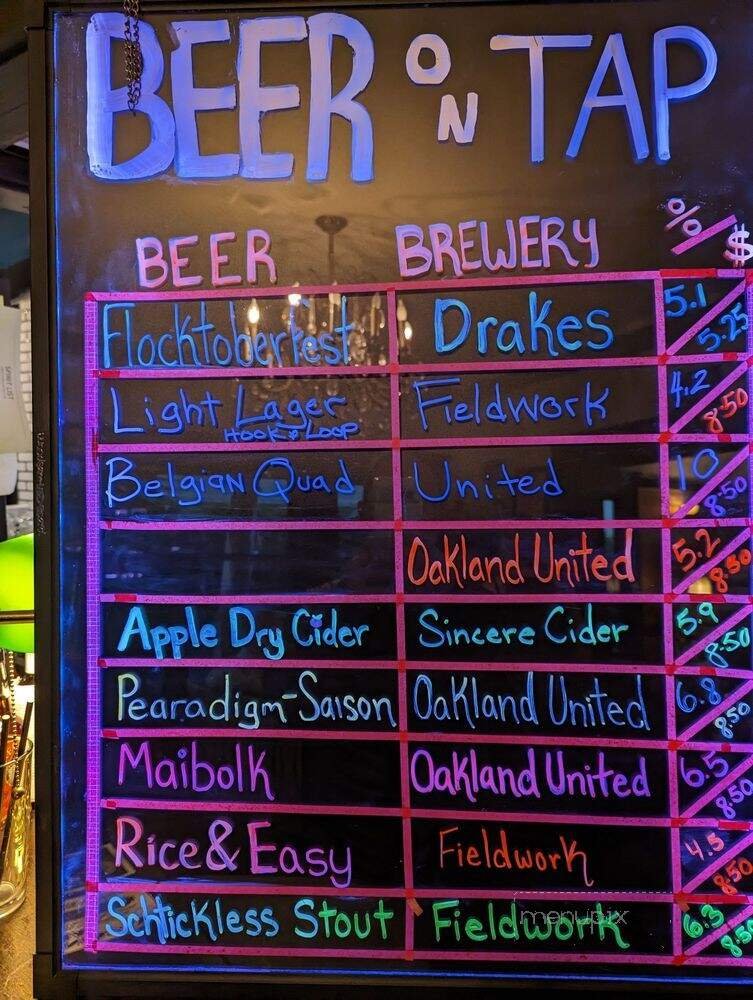 BEER ON TAP
BEER BREWERY % $
Flocktoberfest Drakes 5.1 5.25
Light Lager Fieldwork 4.2 8.50
HOOK & LOOP
Belgian Quad United 10 8.50
Oakland United 5.2 8.50
Apple Dry Cider Sincere Cider 5.9 8.50
Pearadigm-Saison Oakland United 6.8 8.50
Maibolk Oakland United 6.5 8.50
Rice & Easy Fieldwork 4.5 8.50
Schtickless Stout Fieldwork 6.3 8.50
menupix